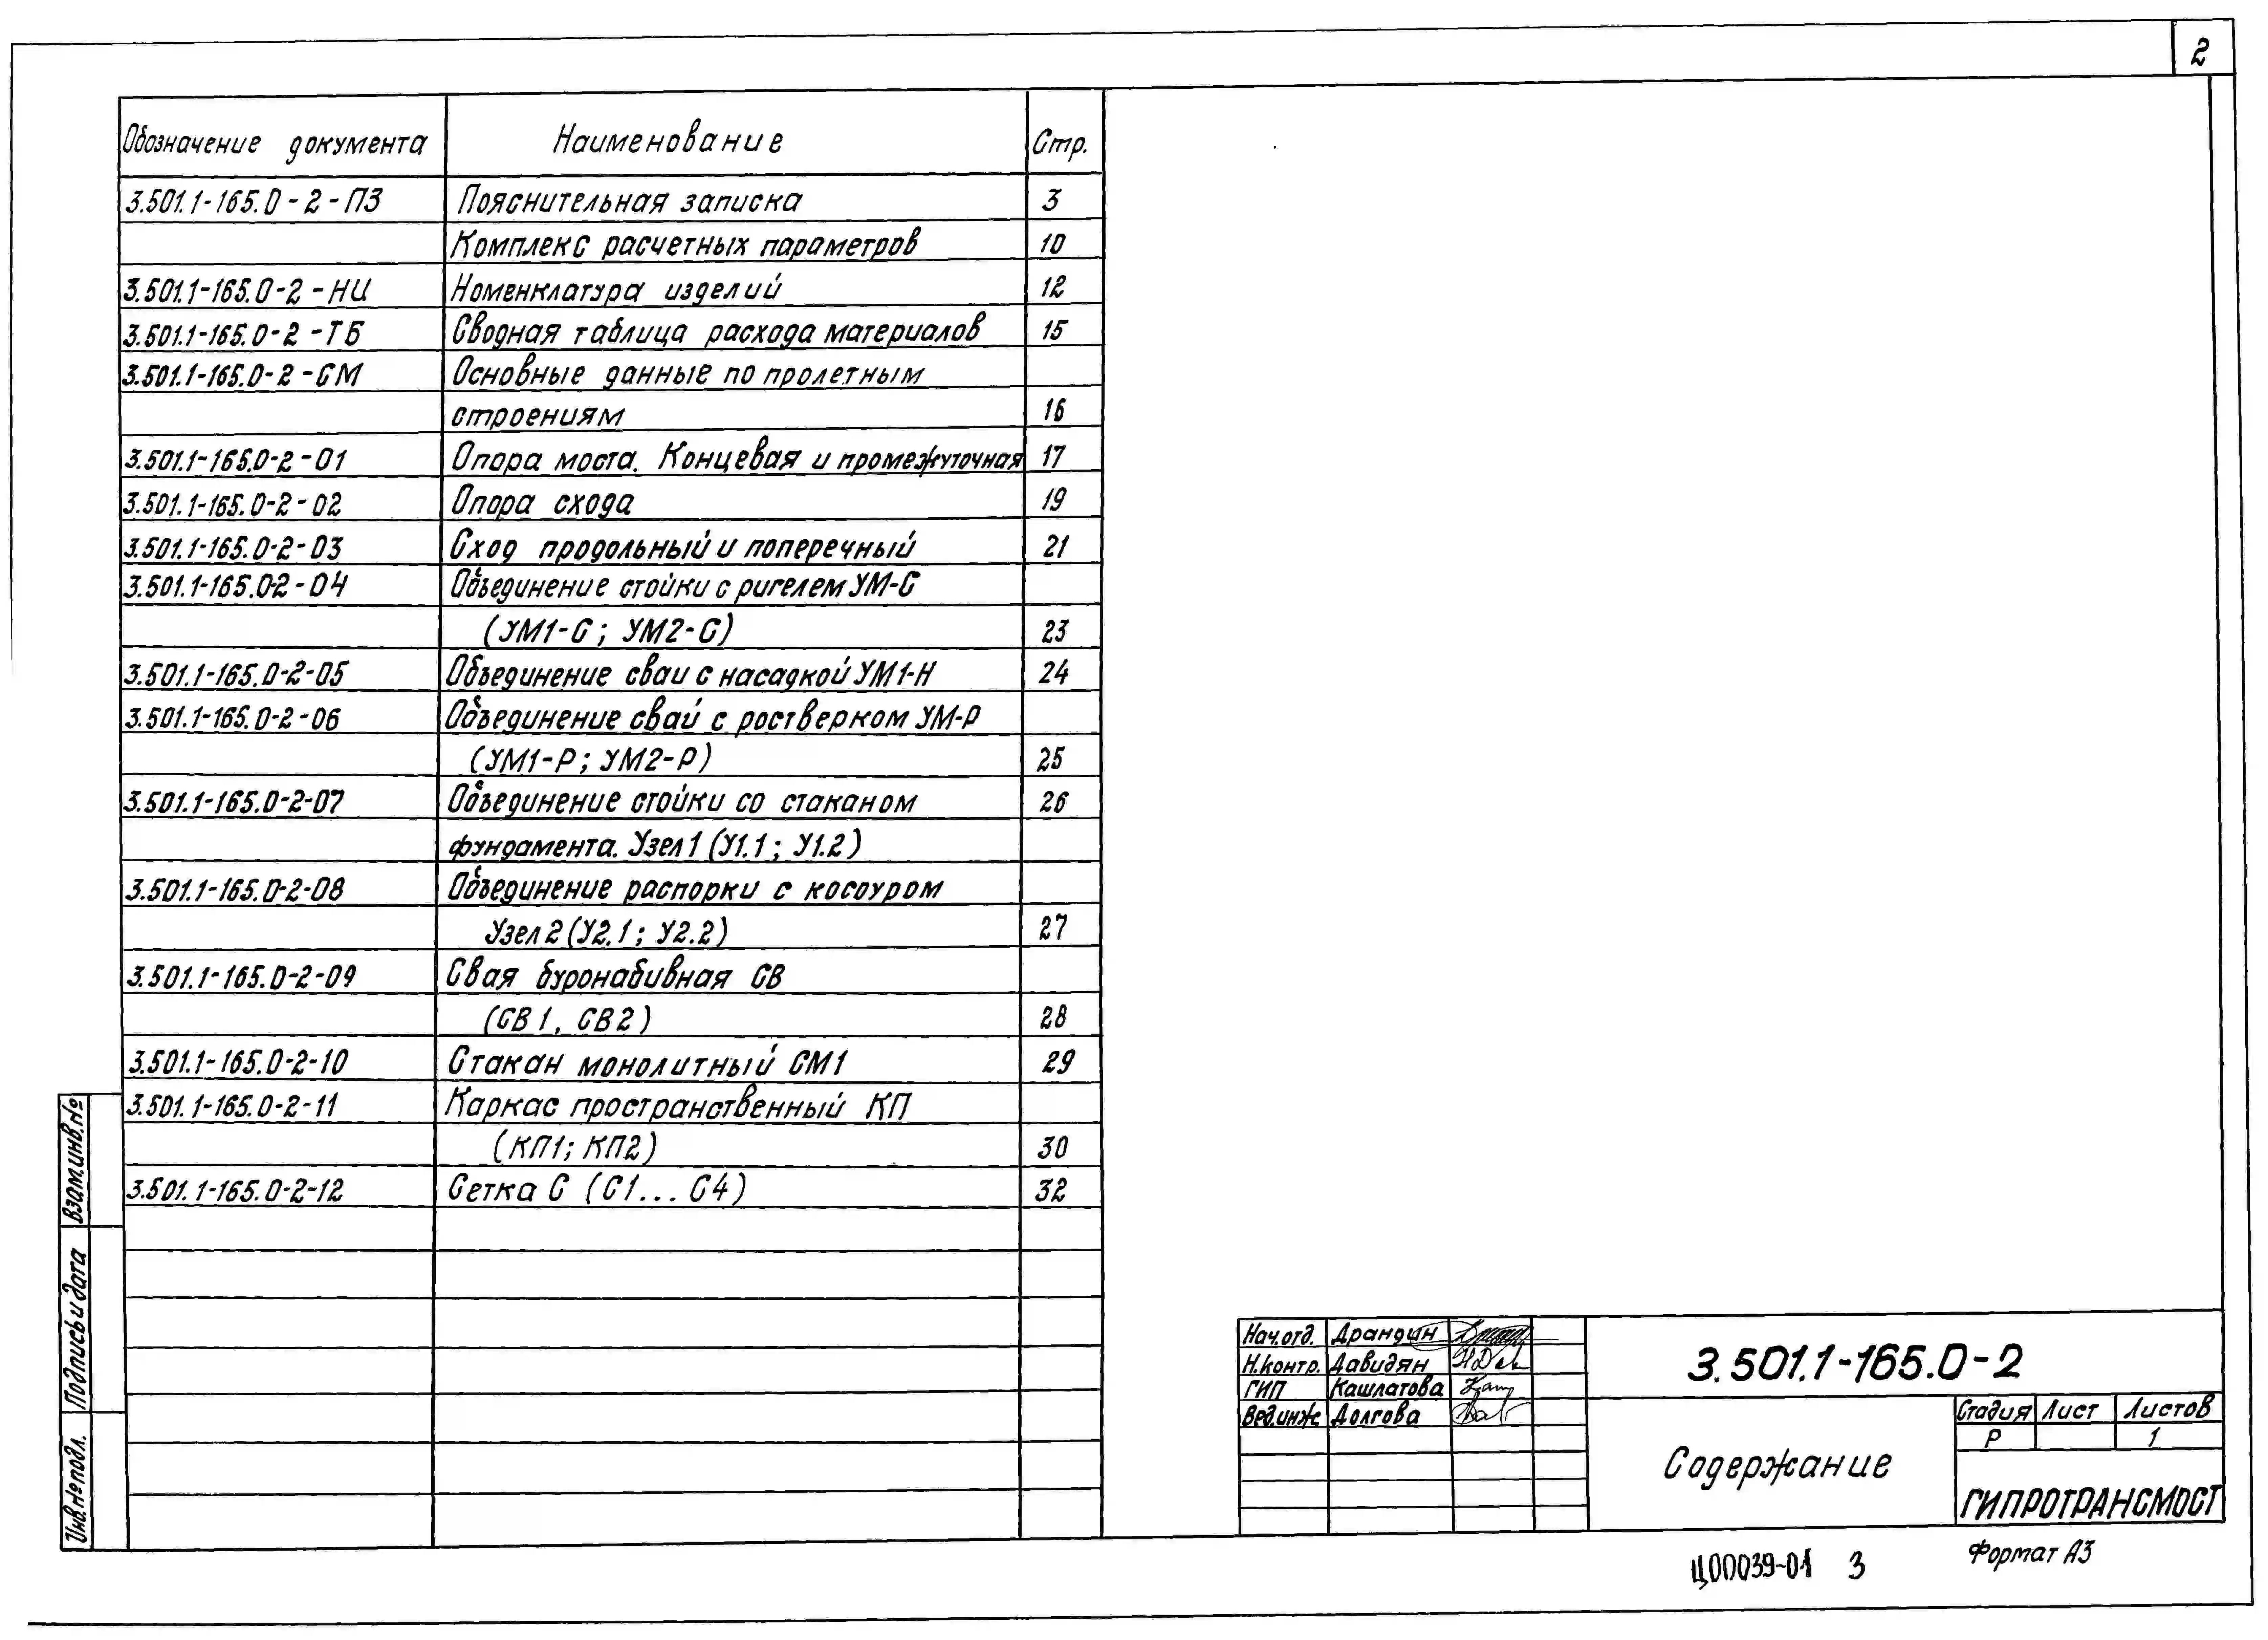 2
Обозначение документа Наименование Стр.
3.501.1-165.0-2-ПЗ Пояснительная записка 3
Комплекс расчетных параметров 10
3.501.1-165.0-2-НИ Номенклатура изделий 12
3.501.1-165.0-2-ТБ Сводная таблица расхода материалов 15
3.501.1-165.0-2-СМ Основные данные по пролетным
строениям 16
3.501.1-165.0-2-01 Опора моста. Концевая и промежуточная 17
3.501.1-165.0-2-02 Опора схода 19
3.501.1-165.0-2-03 Сход продольный и поперечный 21
3.501.1-165.0-2-04 Объединение стойки с ригелем УМ-С
(УМ1-С; УМ2-С) 23
3.501.1-165.0-2-05 Объединение сваи с насадкой УМ1-Н 24
3.501.1-165.0-2-06 Объединение свай с ростверком УМ-Р
(УМ1-Р; УМ2-Р) 25
3.501.1-165.0-2-07 Объединение стойки со стаканом 26
фундамента. Узел 1 (У1.1; У1.2)
3.501.1-165.0-2-08 Объединение распорки с косоуром
Узел 2 (У2.1; У2.2) 27
3.501.1-165.0-2-09 Свая буронабивная СВ
(СВ1, СВ2) 28
3.501.1-165.0-2-10 Стакан монолитный СМ1 29
3.501.1-165.0-2-11 Каркас пространственный КП
(КП1; КП2) 30
3.501.1-165.0-2-12 Сетка С (С1...С4) 32
Взам.инв.№
Подпись и дата
Инв.№подл.
Нач.отд. Драндин
Н.контр. Давидян
ГИП Кашлатова
Вед.инж. Долгова
3.501.1-165.0-2
Содержание
Стадия Лист Листов
Р 1
ГИПРОТРАНСМОСТ
Ц00039-01 3
Формат А3